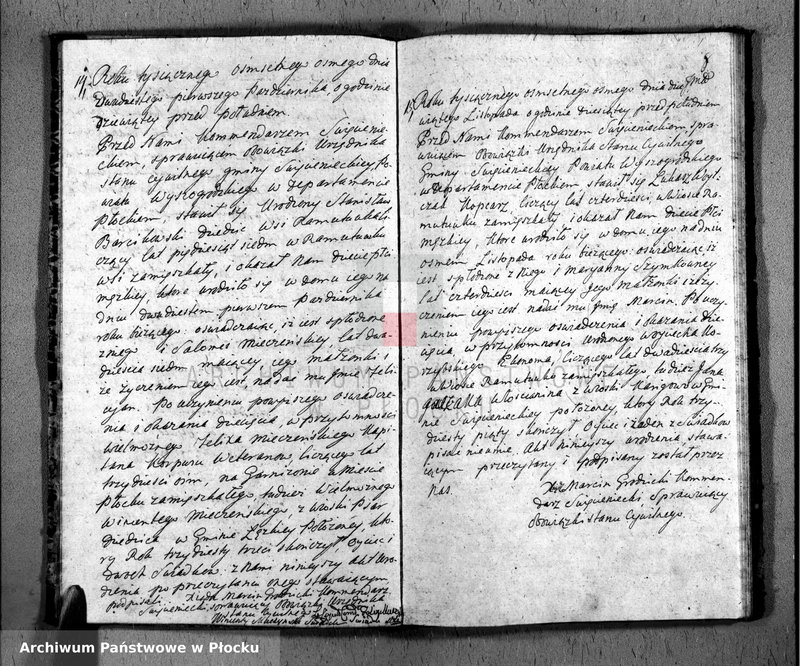 14. Roku tysiącznego ośmsetnego osmego dnia
Dwudziestego pierwszego Pazdziernika, o godzinie
Dziewiątey przed południem.
Przed Nami Kommendarzem Swięcienie-
ckiem, sprawuiącym Obowiązki Urzędnika
stanu cywilnego gminy Swięcienieckiey, Po-
wiatu Wyszogrodzkiego w Departamencie
Płockiem, stawił się Urodzony Stanisław
Barcikowski dziedzic wsi Ramutuwka li-
czący lat pięćdziesiąt siedm w Ramutuwku
wsi zamięszkały, i okazał Nam dziecie płci
męzkiey, ktore urodziło się w domu iego na
dniu dwudziestem pierwszem Pazdziernika
roku bieżącego oswiadczaiąc, iż iest spłodzone
z niego i Salomei Mieczeńskiey, lat dwa-
dziescia siedm maiącey iego małżonki i
że życzeniem iego iest, nadac mu Jmie Feli-
cyan. Po uczynieniu powyższego oswiadcze-
nia i okazania dziecięcia, w przytomności
Wielmożnego Felixa Mieczeńskiego Kapi-
tana Korpusu Weteranow, liczącego lat
trzydziesci osm, na Garnizonie w Miescie
Płocku zamięszkałego, tudzież Wielmożnego
Wincentego Mieczeńskiego, z Wioski Psar
Dziedzica w Gminie położoney, kto-
ry Rok trzydziesty trzeci skończył, Oyciec i
dwoch Swiadkow: z Nami ninieyszy Akt Uro-
dzenia po przeczytaniu onego stawaiącym,
Podpisali. Xiądz Marcin Grodzicki Kommendarz
Swięcieniecki sprawuiący Obowiązki Urzędnika
Stanu Cywilnego
8
15. Roku tysiącznego osmsetnego osmego dnia dzie-
wiątego Listopada o godzinie dziesiątey przed południem
Przed Nami Kommendarzem Swięcienieckiem, spra-
wuiącem Obowiązki Urzędnika Stanu Cywilnego
Gminy Swięcienieckiey Powiatu Wyszogrodzkiego
w Departamencie Płockiem, stawił się Łukasz
Kopcarz liczący lat czterdziesci, w Wiosce Ra-
mutuwku zamięszkały, i okazał Nam dziecie Płci
męzkiey, ktore urodziło się w domu, iego na dniu
osmem Listopada roku bieżącego: oswiadczaiąc iż
iest spłodzone z Niego i Maryanny Szymkowney
lat czterdziesci maiącey Jego małżonki i ży-
czeniem iego iest nadać mu Jmię Marcin. Po uczy-
nieniu powyższego oswiadczenia i okazania dzie-
cięcia, w przytomności Urodzonego Woyciecha
Ekonoma, liczącego lat dwadziescia trzy
w Wiosce Ramutuwku zamięszkałego tudzież Jana
Włoscianina z Wioski w Gmi-
nie Swięcienieckiey położoney, ktory Rok trzy-
dziesty piąty skończył. Oyciec i żaden z Swiadkow
pisać nie umie, Akt ninieyszy urodzenia stawa-
iącym przeczytany i podpisany został przez
Nas.
Xdz Marcin Grodzicki Kommen-
darz Swięcieniecki Sprawuiący
Obowiązki stanu Cywilnego.
ARCHIWUM PAŃSTWOWE
W PŁOCKU
Archiwum Państwowe w Płocku